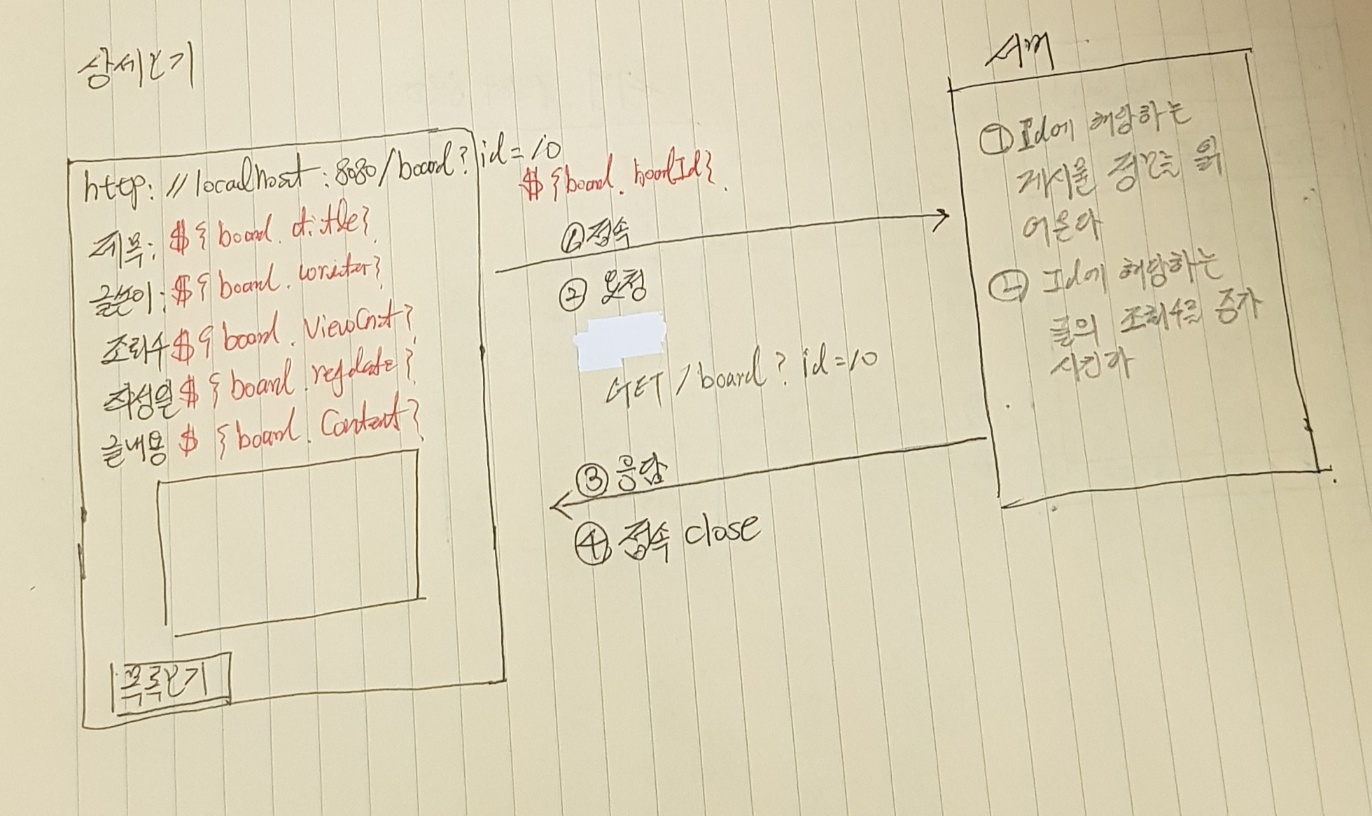 상세보기
http://localhost:8080/board?id=10
${board.boardId}
제목: ${board.title}
글쓴이: ${board.writer}
조회수 ${board.ViewCnt}
작성일 ${board.regdate}
글내용 ${board.Content}
목록보기
① 접속
② 요청
GET /board?id=10
③ 응답
④ 접속 close
서버
① Id에 해당하는
게시물 정보를 읽
어온다
② Id에 해당하는
글의 조회수를 증가
시킨다